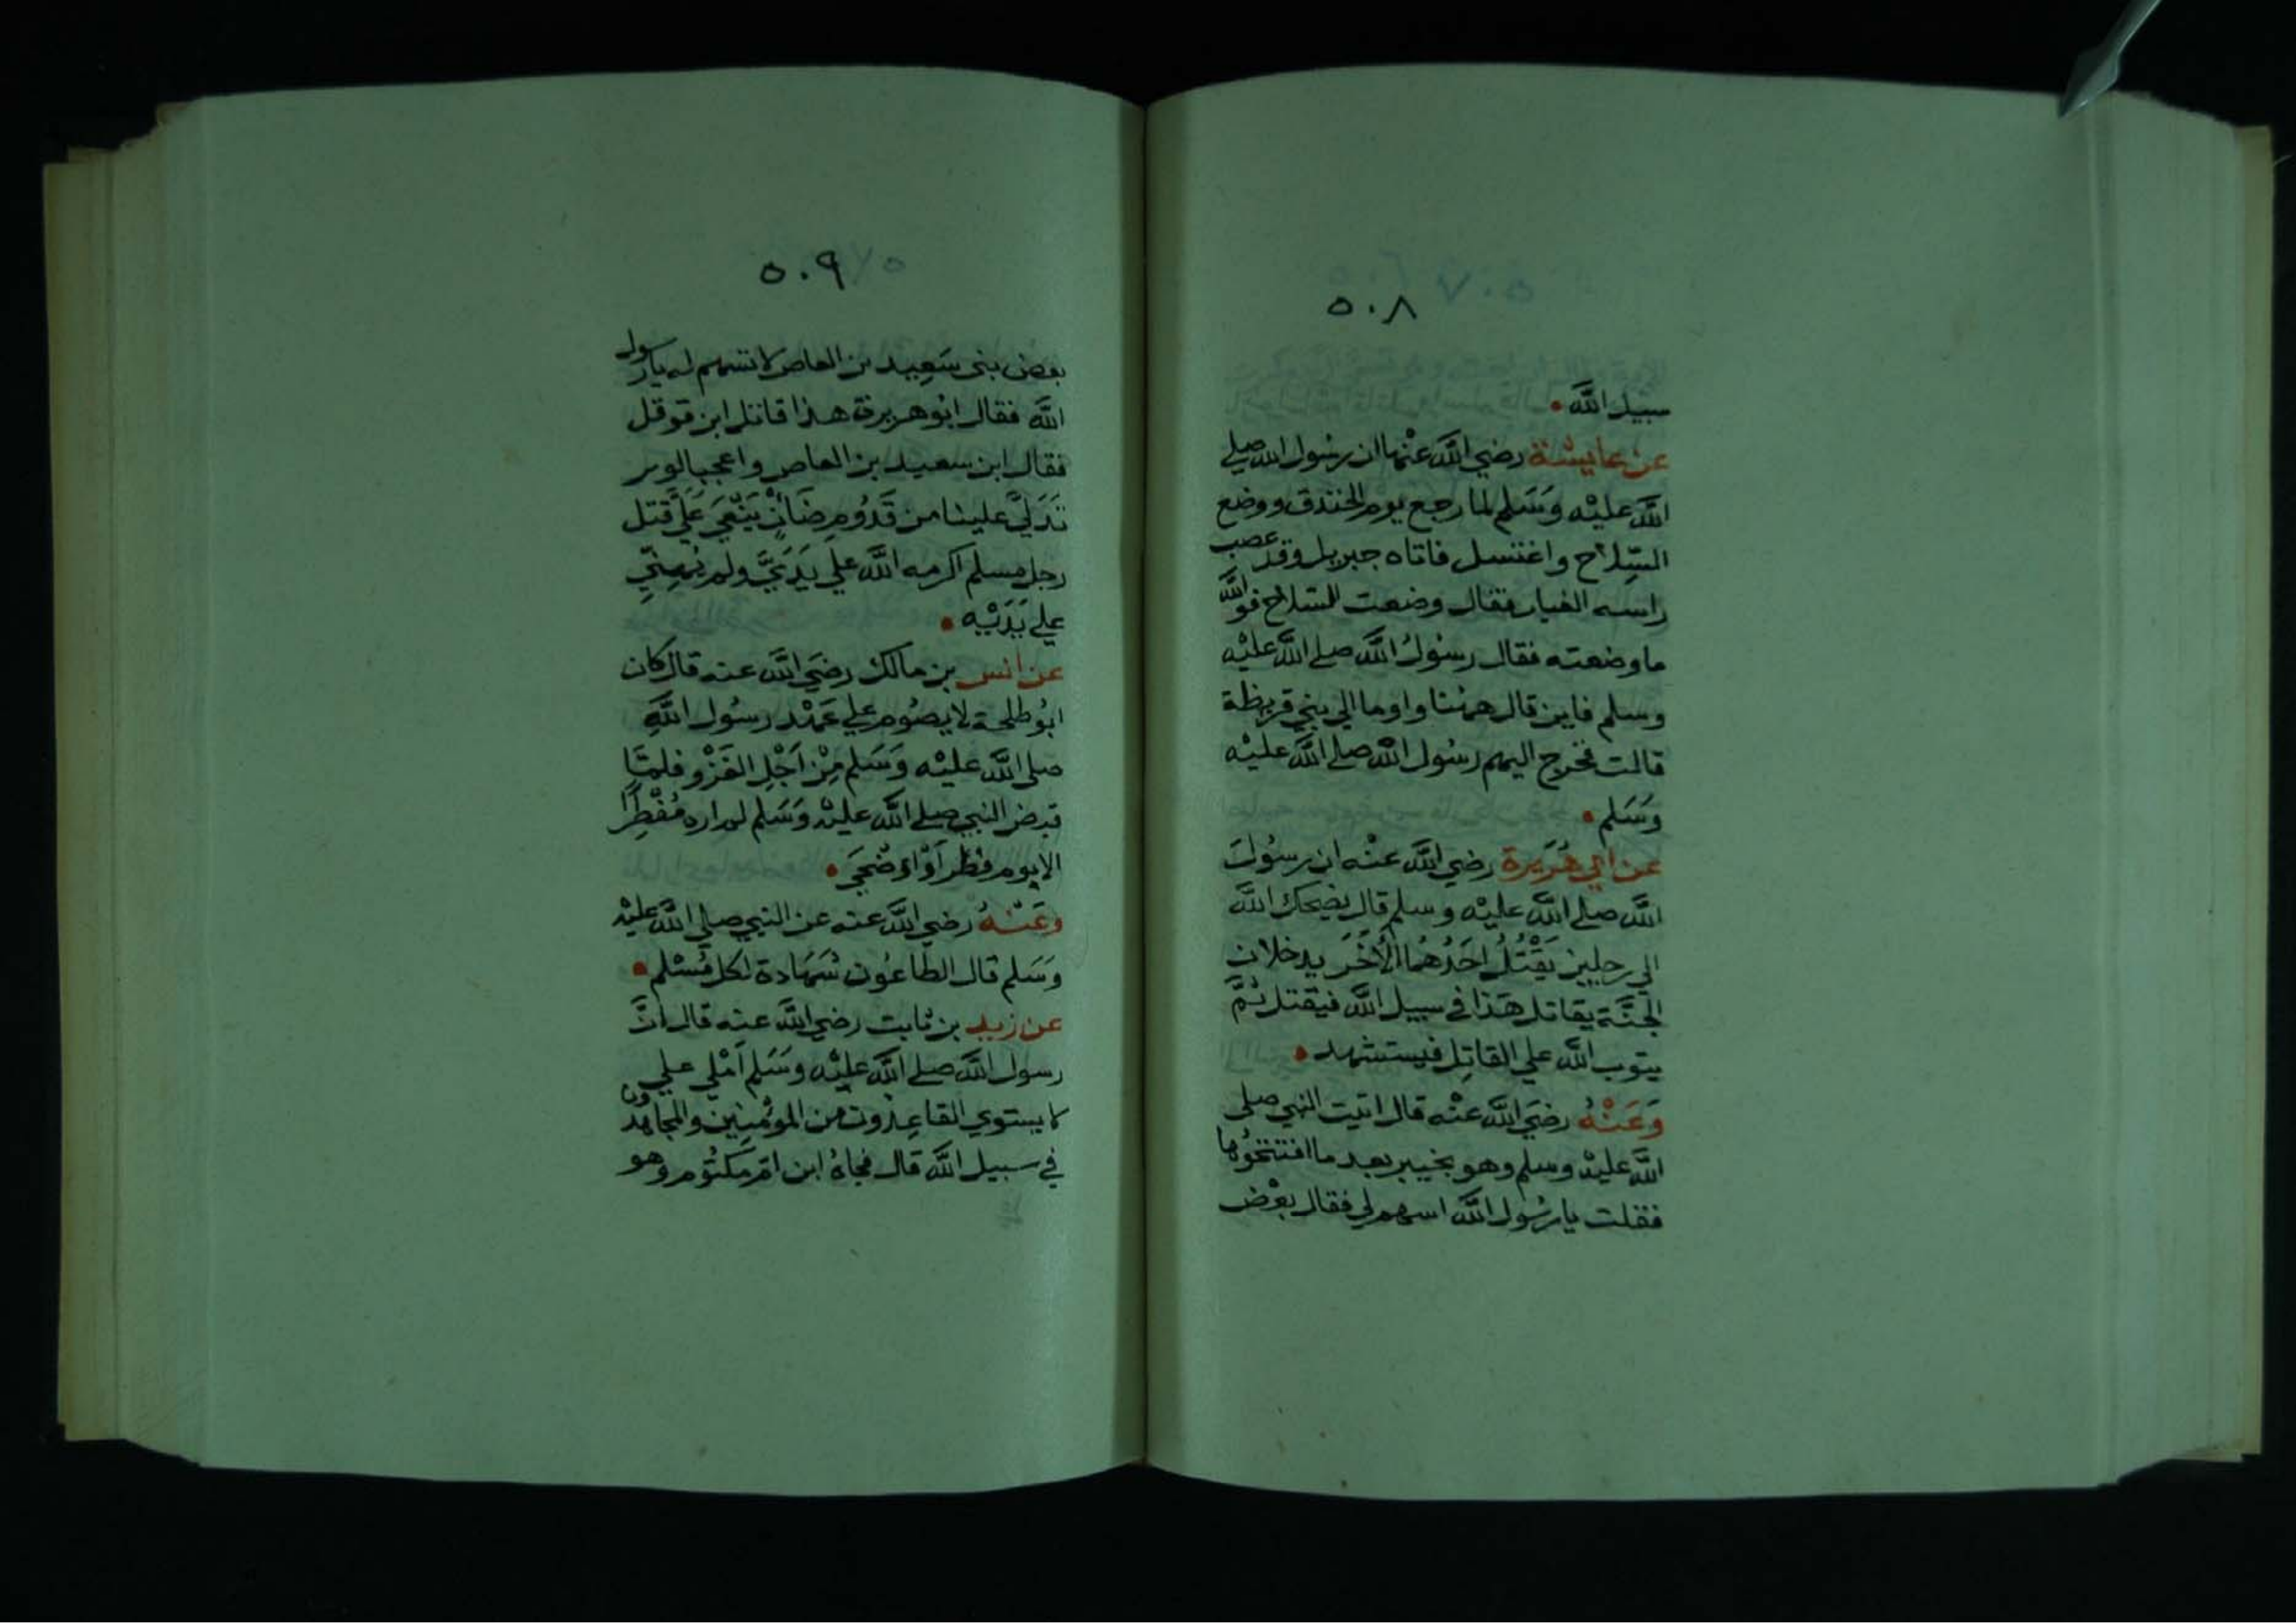 ٥٠٨
سبيل الله •
عن عايشة رضي الله عنها ان رسول الله صلى
الله عليْه وَسَلم لما رجع يوم الخندق ووضع
السّلاح واغتسل فاتاه جبريل وقد عصب
راسه الغبار فقال وضعت السّلاح فوالله
ما وضعته فقال رسُول الله صلى الله عليْه
وسلم فاين قال ههنا واوما الي بني قريظة
قالت فخرج اليهم رسُول الله صلى الله عليْه
وَسَلم •
عن ابي هُرَيرة رضي الله عنْه ان رسُول
الله صلى الله عليْه وسلم قال يضحك الله
الي رجلين يَقْتُلُ احَدُهُمَا الْاخَرَ يدخلان
الجنَّة يقاتل هَذا في سبيل الله فيقتل ثُمَّ
يتوب الله علي القاتِل فيستشهد •
وَعَنْهُ رضيَ الله عنْه قال اتيت النبي صلى
الله عليْه وسلم وهو بخيبر بعد ما افتتحُوها
فقلت يا رسُول الله اسهم لي فقال بعْض
٥٠٩
بعض بني سَعِيد بن العاص لا تسهم له يا رسول
الله فقال ابُو هريرة هذا قاتل ابن قوقل
فقال ابن سعيد بن العاص واعجبا لوبر
تَدَلَّي علينا من قَدُوم ضَانٍ يَنْعَي عَلَيَّ قتل
رجل مسلم اكرمه الله علي يَدَيَّ ولم يُهِنِّي
علي يَدَيْه •
عن انس بن مالك رضيَ الله عنه قال كان
ابُو طلحة لا يصُوم علي عَهْد رسُول الله
صلى الله عليْه وَسَلم مِنْ اَجْلِ الغَزْو فلمَّا
قبض النبي صلى الله عليْه وَسَلم لم اره مُفْطِرًا
الا يوم فطر اَوْ اضْحَي •
وَعَنْهُ رضي الله عنه عن النبي صلى الله عليْه
وَسَلم قال الطاعُون شَهَادة لكل مُسْلم •
عن زيد بن ثابت رضي الله عنه قال انَّ
رسول الله صلى الله عليْه وَسَلم اَمْلي علي
لا يستوي القاعِدُون من المؤمِنِين والمجاهدون
في سبيل الله قال فجاهُ ابن امّ مَكتُوم وهو